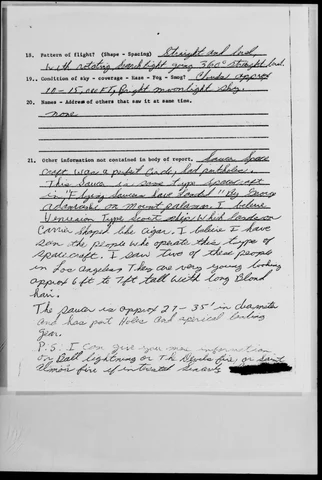 18. Pattern of flight? (Shape - Spacing) Straight and level,
with rotating searchlight going 360° straight level.
19. Condition of sky - coverage - Haze - Fog - Smog? Clouds approx
10-15,000 FT, Bright moonlight sky.
20. Names - Address of others that saw it at same time.
none
21. Other information not contained in body of report. Saucer Space
craft was a perfect Circle, had portholes.
This Saucer is same type spacecraft
in "Flying Saucers have Landed" By George
Adamski on Mount Palamar. I believe
Venusian Type Scout ship which lands on
Carrier shaped like cigar. I believe I have
seen the people who operate this type of
spacecraft. I saw two of these people
in Los Angeles. They are very young looking
approx 6ft to 7ft tall with long Blond
hair.
The saucer is approx 27-35' in diameter
and has port Holes and sperical landing
gear.
P.S. I can give you more information
on Ball lightning or The Devils fire, or Saint
Elmos fire if intrested